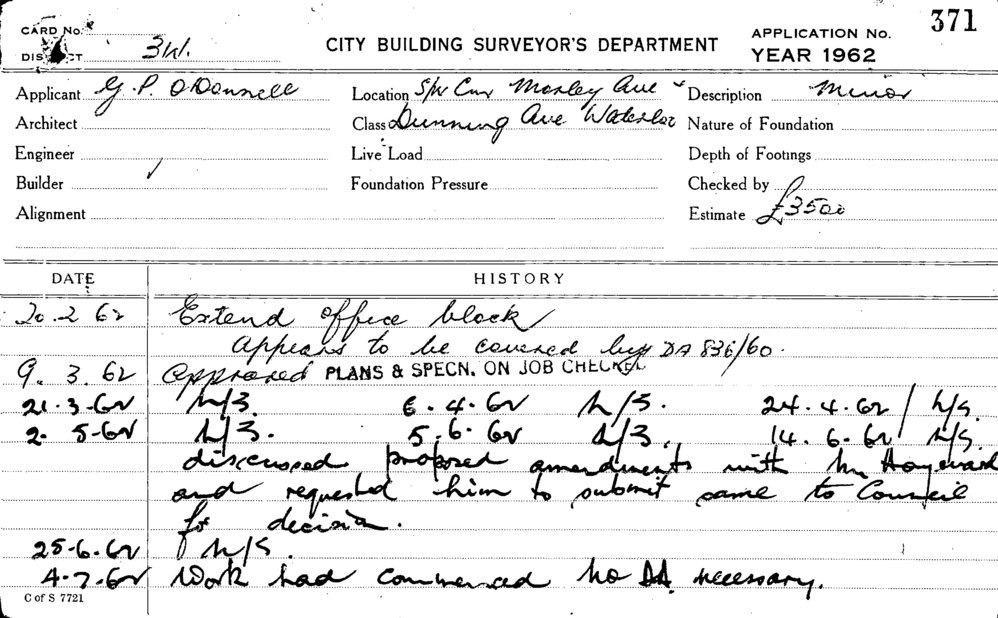 CARD No. 371
DISTRICT 3W. CITY BUILDING SURVEYOR'S DEPARTMENT APPLICATION No.
YEAR 1962
Applicant G. P. O'Donnell Location S/W Cnr Morley Ave Description Minor
Architect Class Dunning Ave Waterloo Nature of Foundation
Engineer Live Load Depth of Footings
Builder Foundation Pressure Checked by
Alignment Estimate £3500
DATE HISTORY
20.2 62 Extend office block
Appears to be covered by DA 836/60.
9. 3. 62 Approved PLANS & SPECN. ON JOB CHECKED
21.3-62 N/S. 6.4.62 N/S. 24.4.62 N/S
2. 5-62 N/S. 5.6.62 N/S. 14.6.62 N/S
discussed proposed amendments with Mr Hayward
and requested him to submit same to Council
for decision.
25-6.62 N/S.
4-7-62 Work had commenced No DA necessary.
C of S 7721